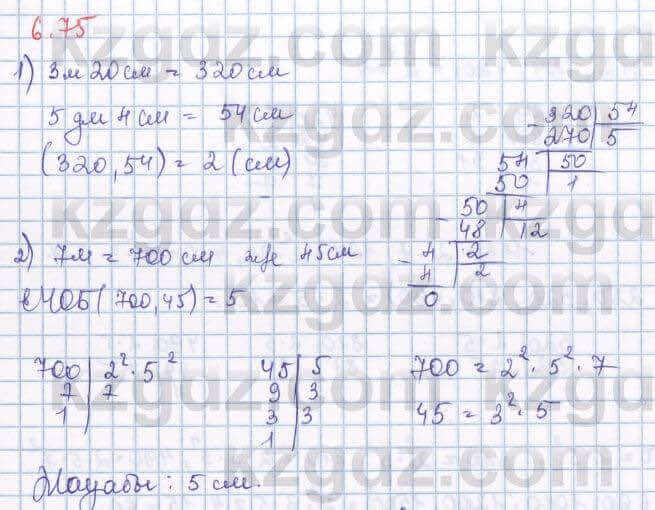 6.75
1) 3м 20см = 320см
5 дм 4 см = 54 см
(320, 54) = 2 (см)
320 | 54
270 | 5
54 | 50
50 | 1
50 | 4
48 | 12
4 | 2
4 | 2
0
2) 7м = 700 см және 45см
ЕҮОБ(700, 45) = 5
700 | 2² · 5²
7 | 7
1
45 | 5
9 | 3
3 | 3
1
700 = 2² · 5² · 7
45 = 3² · 5
Жауабы: 5 см.
kzgdz.com